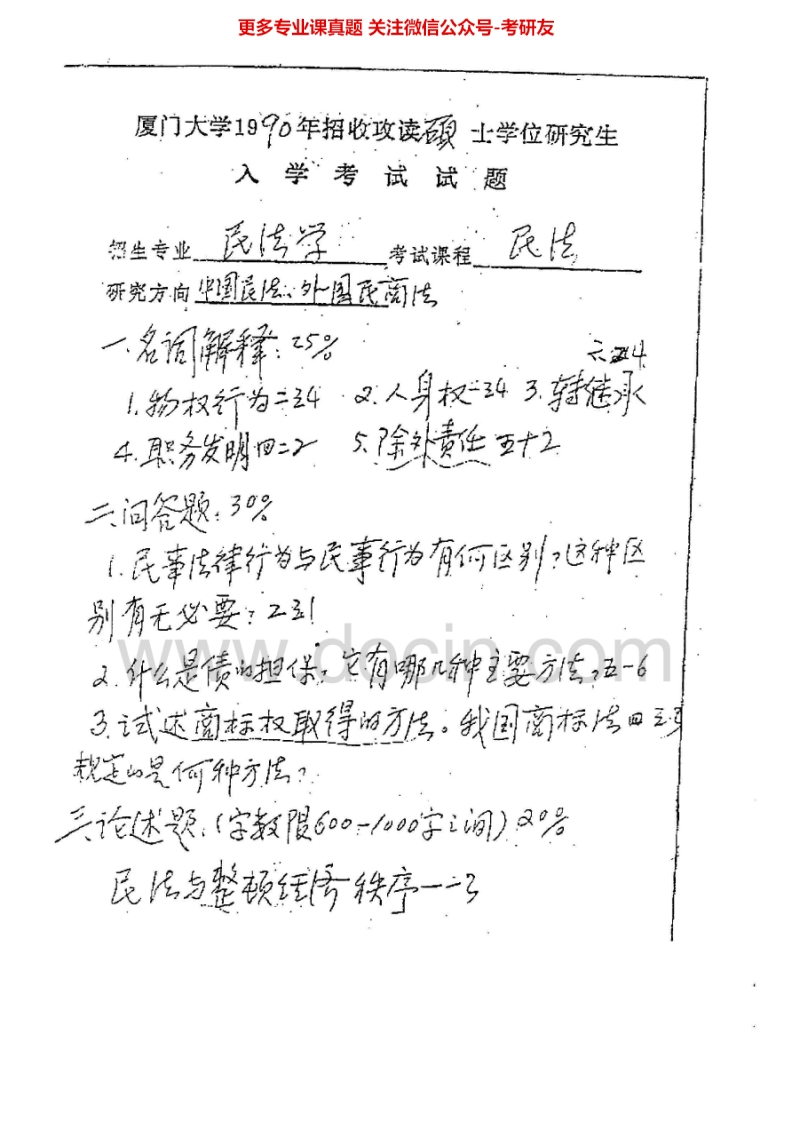 更多专业课真题 关注微信公众号-考研友
厦门大学1990年招收攻读硕士学位研究生
入学考试试题
招生专业 民法学 考试课程 民法
研究方向 中国民法、外国民商法
一、名词解释：25%
六 4
1.物权行为二34 2.人身权二34 3.转继承
4.职务发明四二2 5.除外责任五十2
二、问答题：30%
1.民事法律行为与民事行为有何区别？这种区
别有无必要？231
www.docin.com
2.什么是债的担保，它有哪几种主要方法？五-6
3.试述商标权取得的方法。我国商标法四三
规定的是何种方法？
三、论述题、(字数限600-1000字之间) 20%
民法与整顿经济秩序一一3